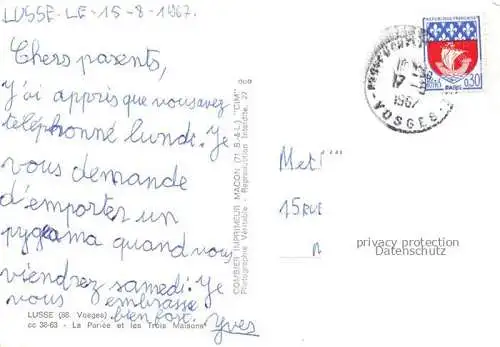 LUSSE-LE-15-8-1967.
Chers parents,
J'ai appris que vous avez
téléphonné lundi. Je
vous demande
d'emporter un
pygeama quand vous
viendrez samedi. Je
vous embrasse
bien fort. Yves
LUSSE (88. Vosges)
cc 38-63 - La Pariée et les Trois Maisons
COMBIER IMPRIMEUR MACON (71. S.-&-L.) "CIM"
Photographie Véritable - Reproduction Interdite.
REPUBLIQUE FRANÇAISE
0,30
PARIS
17
1967
VOSGES
Met
15 RUE
privacy protection
Datenschutz